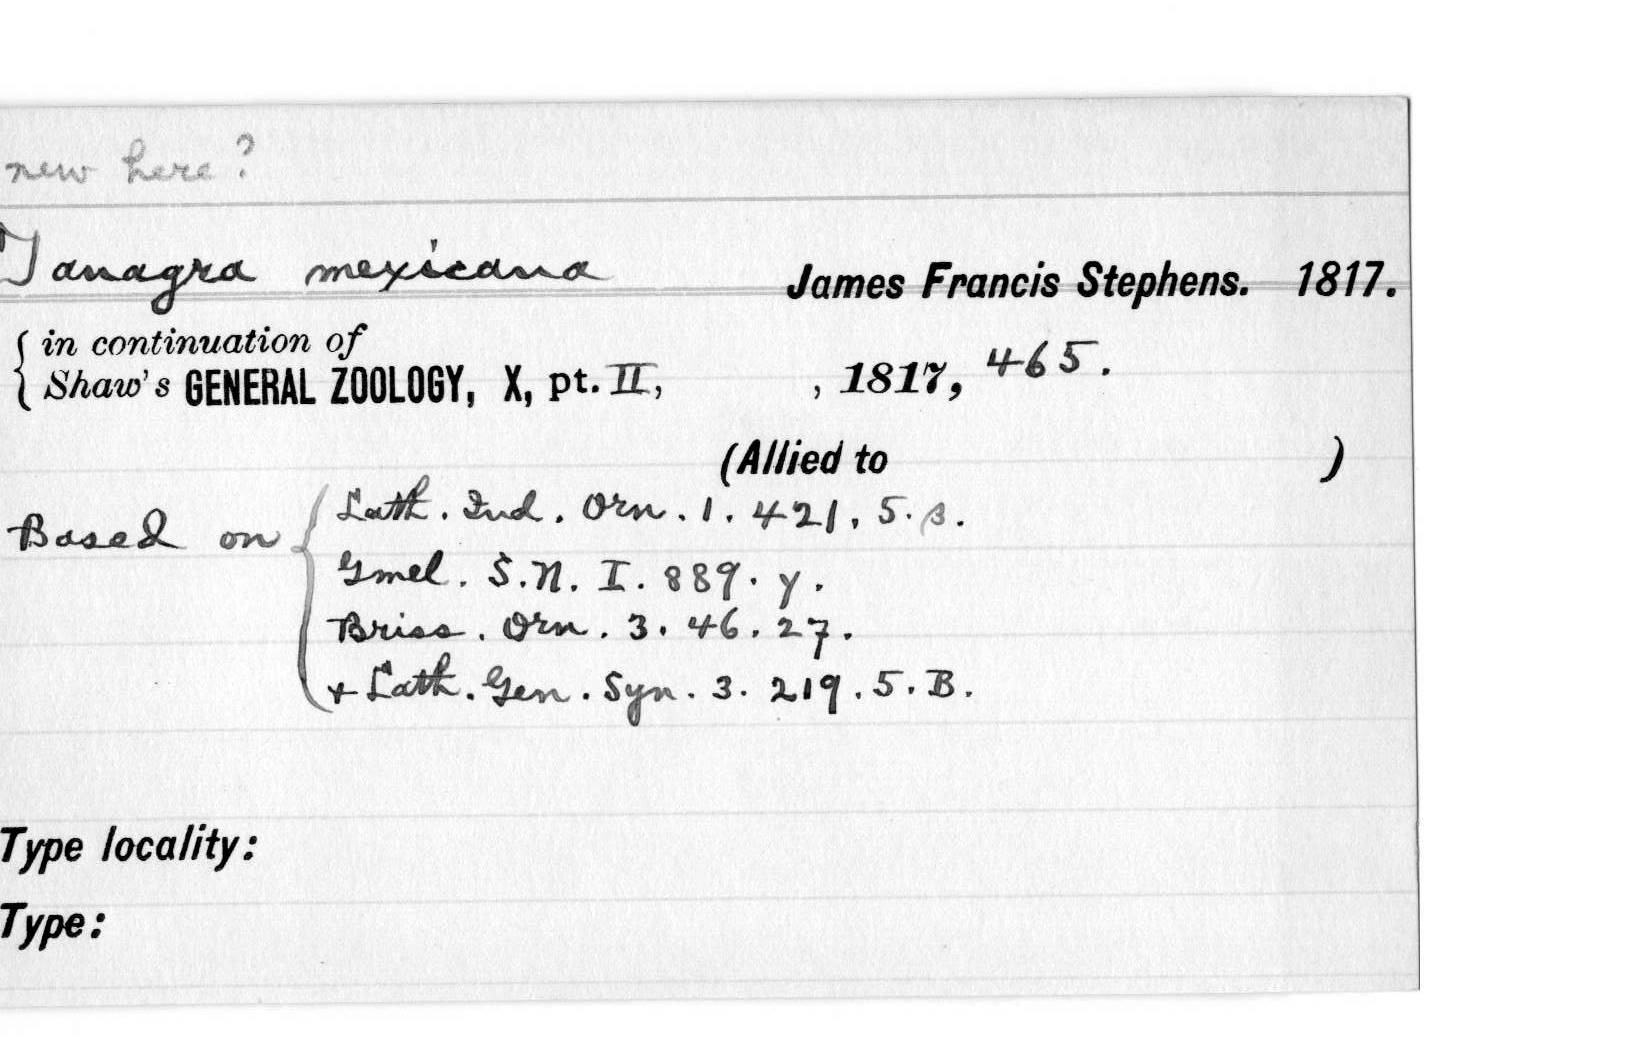 new here?
Tanagra mexicana James Francis Stephens. 1817.
in continuation of
Shaw's GENERAL ZOOLOGY, X, pt. II, , 1817, 465.
(Allied to )
Based on
Lath. Ind. Orn. 1. 421. 5. β.
Gmel. S. N. I. 889. γ.
Briss. Orn. 3. 46. 27.
+ Lath. Gen. Syn. 3. 219. 5. B.
Type locality:
Type: